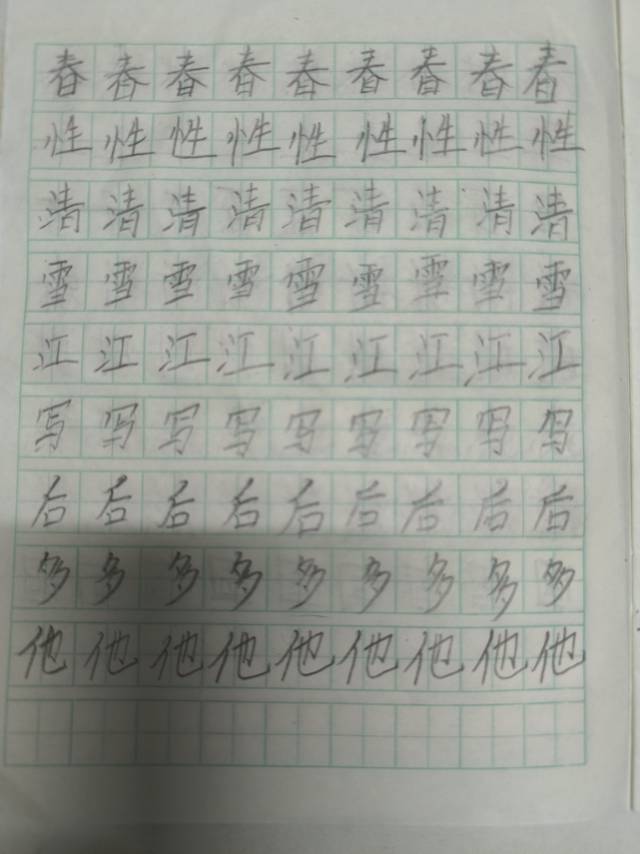 春春春春春春春春春
性性性性性性性性性
清清清清清清清清清
雪雪雪雪雪雪雪雪雪
江江江江江江江江江
写写写写写写写写写
后后后后后后后后后
多多多多多多多多多
他他他他他他他他他